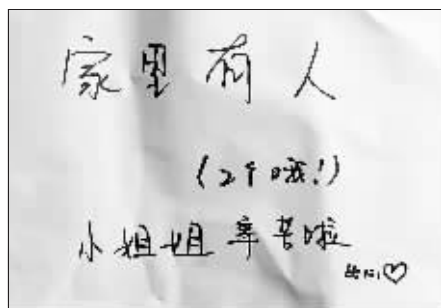 家里有人
(2个哦!)
小姐姐辛苦啦
比心♡